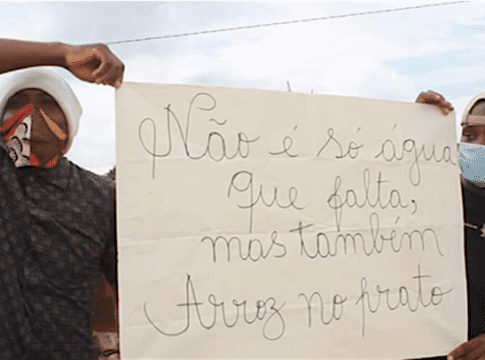 Não é só água
que falta,
mas também
Arroz no prato